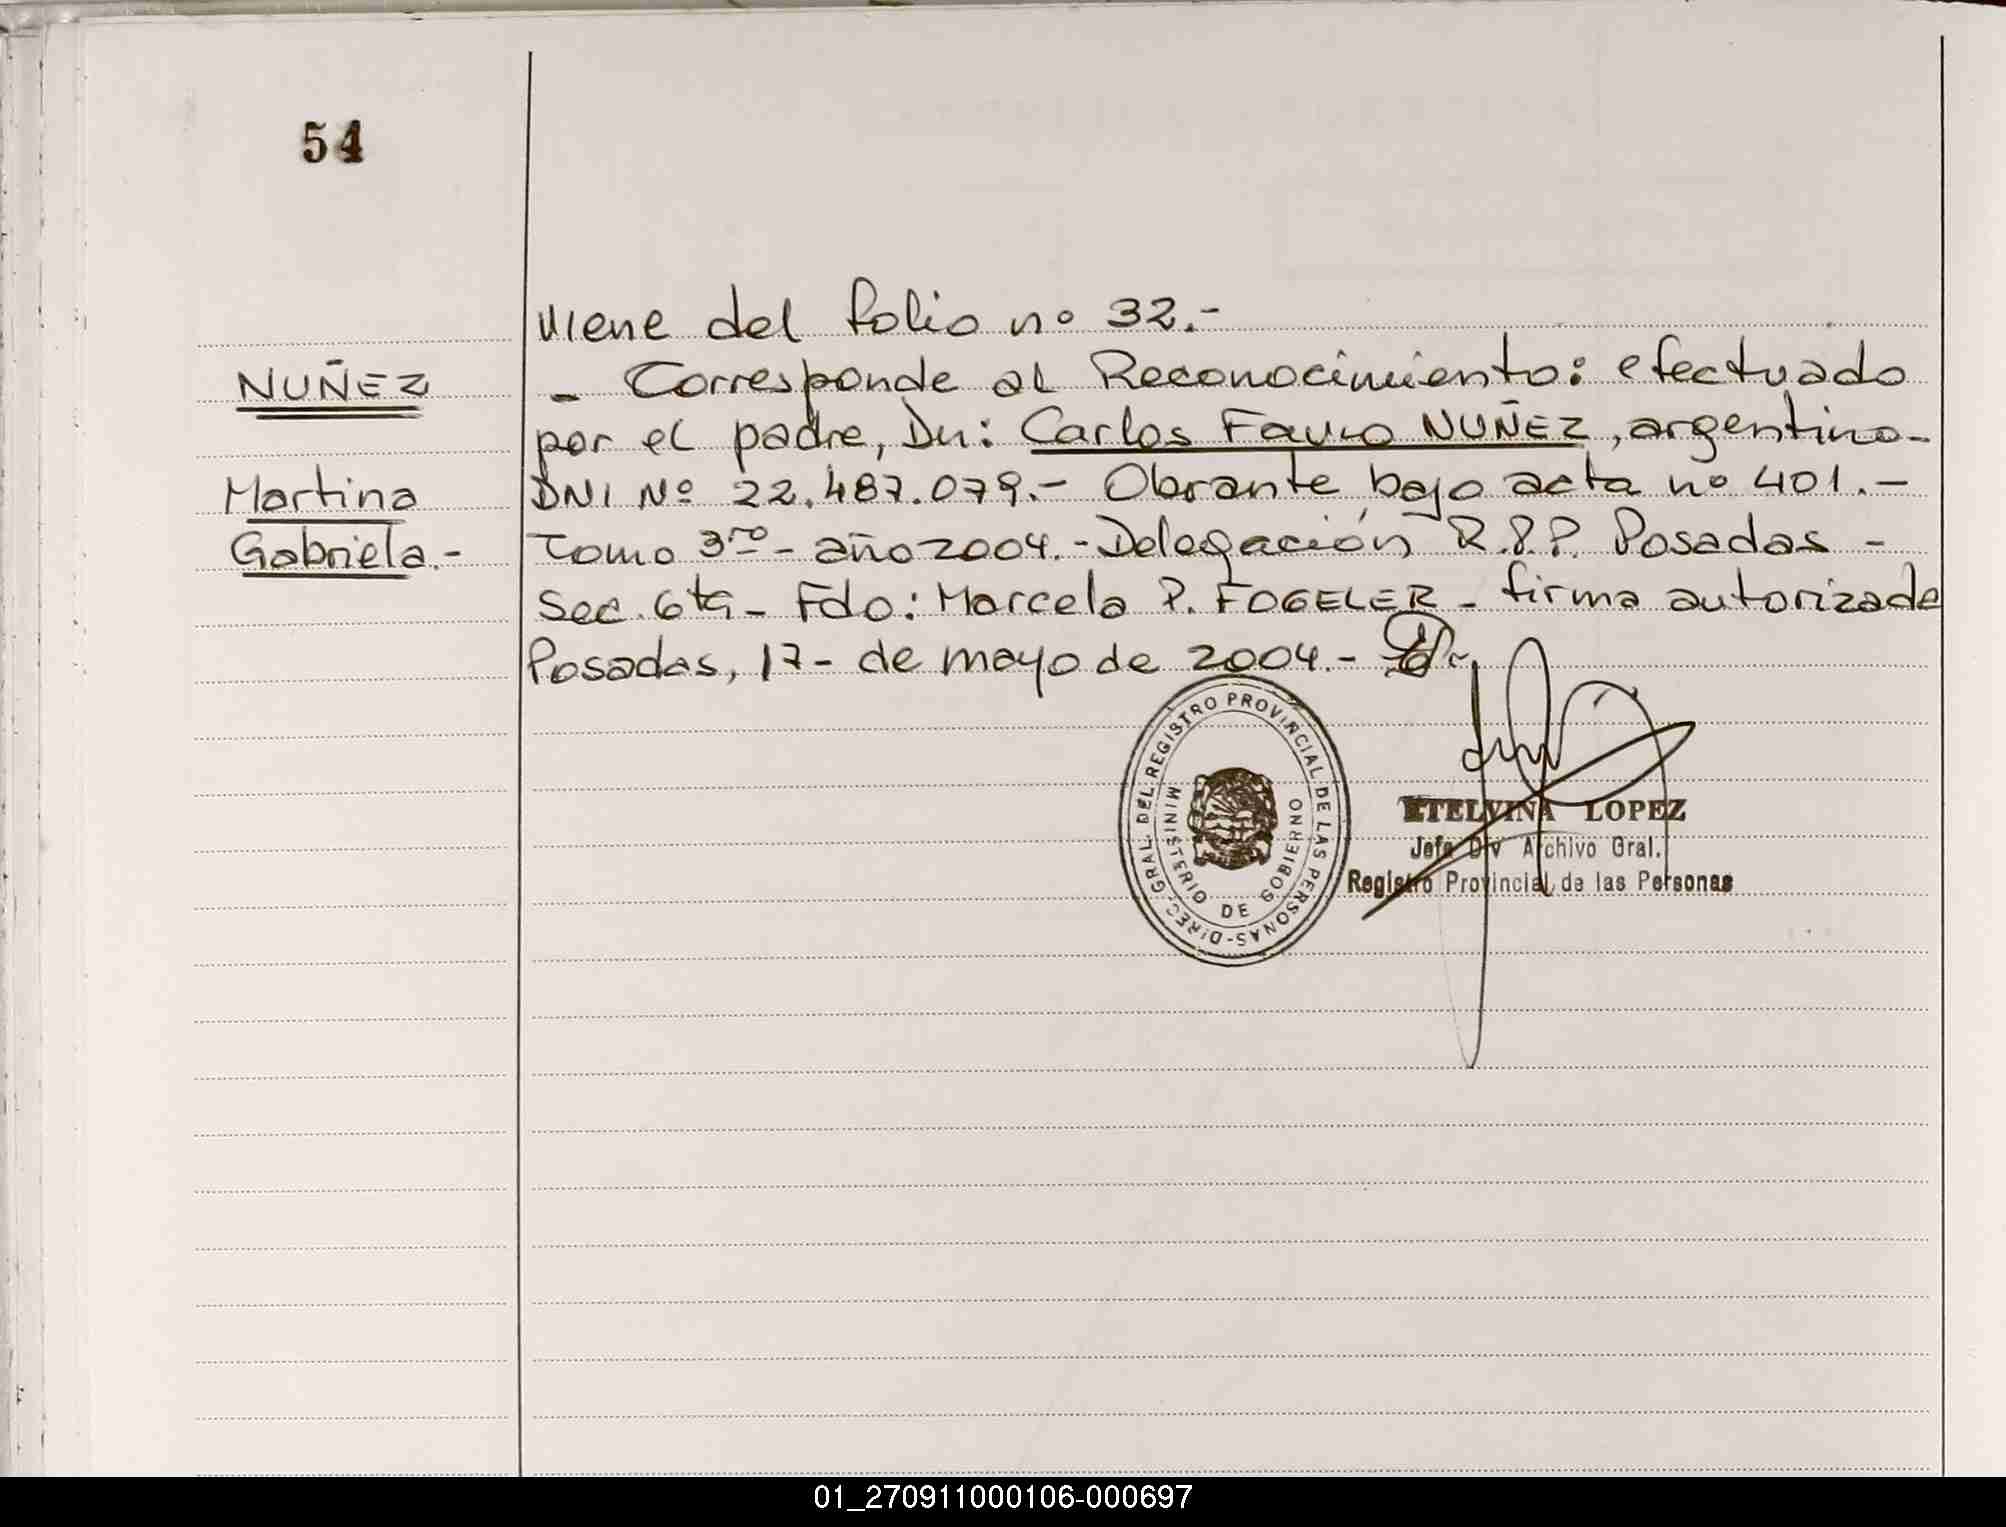 54
NUÑEZ
Martina
Gabriela.-
viene del folio nº 32.-
- Corresponde al Reconocimiento: efectuado
por el padre, Dn: Carlos NUÑEZ, argentino-
DNI Nº 22.487.079.- Obrante bajo acta nº 401.-
Tomo 3ro- año 2004.- Delegación R.P.P. Posadas -
Sec. 6ta- Fdo: Marcela P. FOGELER - firma autorizada
Posadas, 17- de mayo de 2004.-
DIREC. GRAL. DEL REGISTRO PROVINCIAL DE LAS PERSONAS-
MINISTERIO DE GOBIERNO
ETELVINA LOPEZ
Jefe Div Archivo Gral.
Registro Provincial de las Personas
01_270911000106-000697